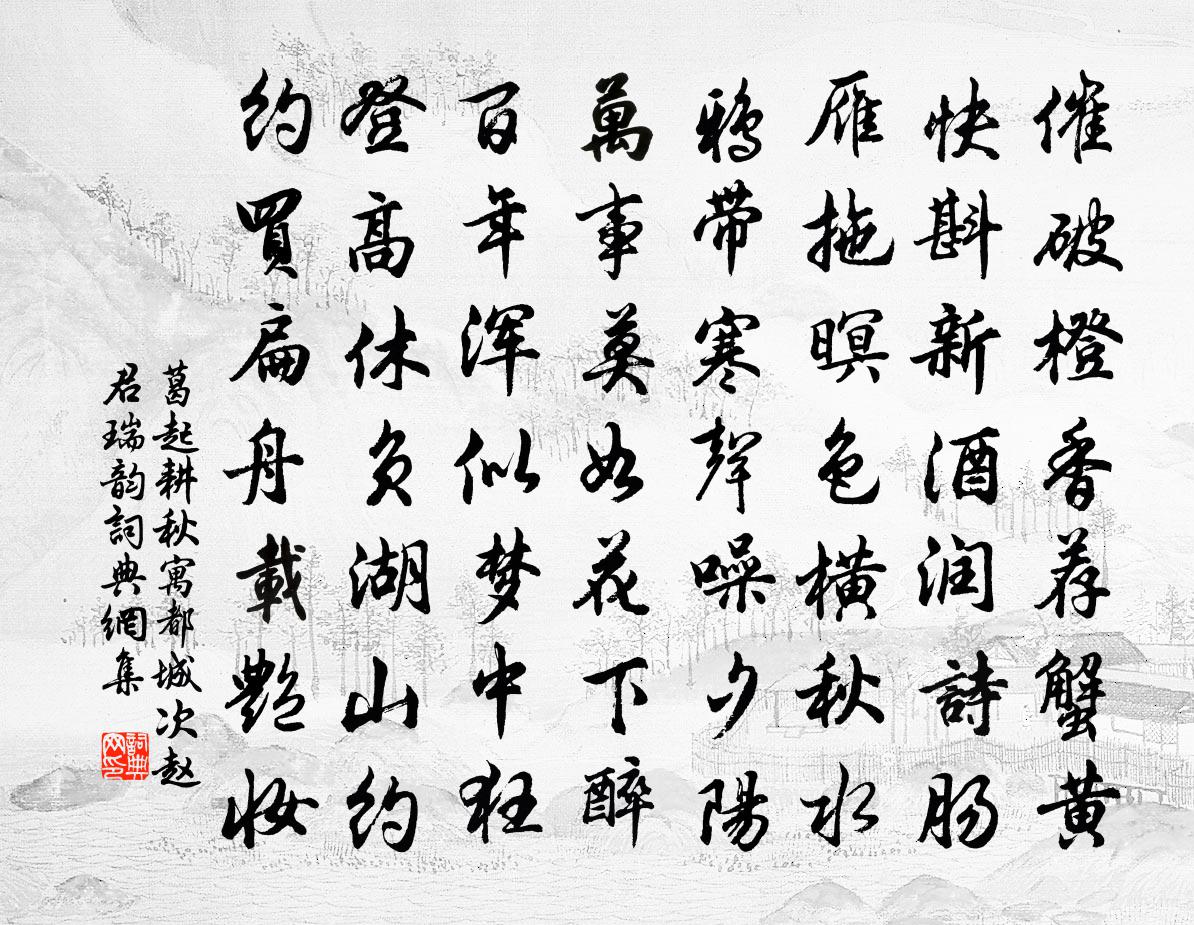 催破橙香荐蟹黄
快斟新酒润詩肠
雁拖暝色横秋水
鸦带寒聲噪夕陽
萬事莫如花下醉
百年浑似梦中狂
登高休负湖山约
约買扁舟載艶妆
葛起耕秋寓都城次赵
君瑞韵詞典網集
詞典
网印